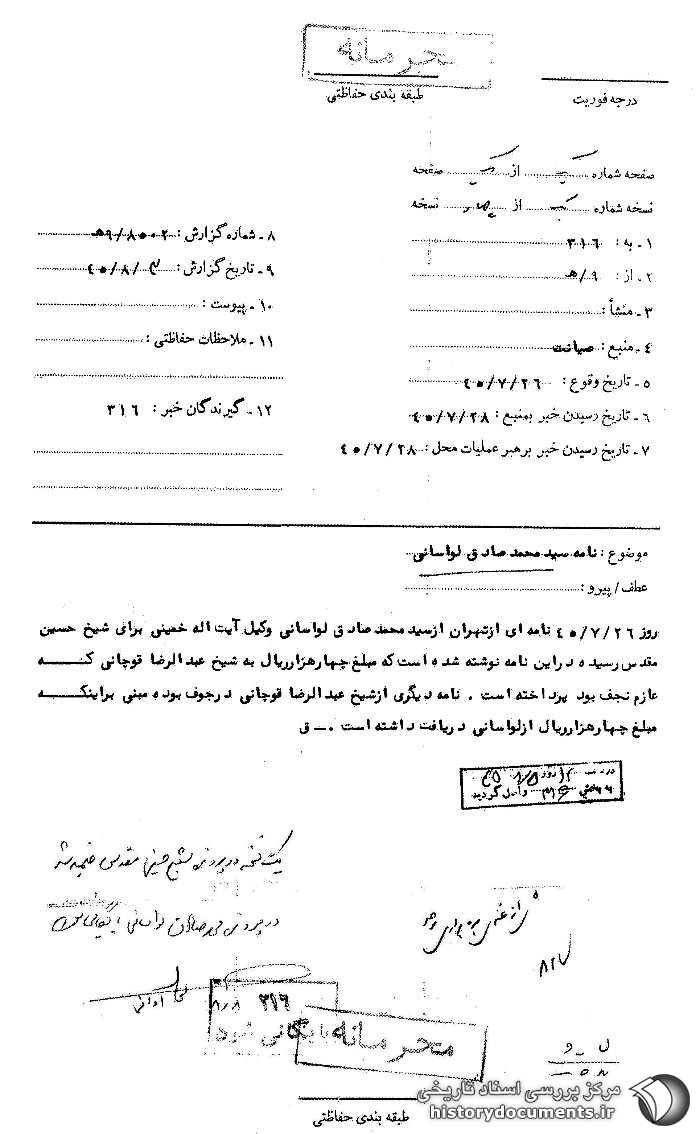 محرمانه
درجه فوریت
طبقه بندی حفاظتی
صفحه شماره یک از یک صفحه
نسخه شماره یک از چهار نسخه
۱ـ به : ۳۱۶
۲ـ از : ۹/هـ
۳ـ منشأ :
۴ـ منبع : صیانت
۵ ـ تاریخ وقوع : ۴۰/۷/۲۶
۶ ـ تاریخ رسیدن خبر بمنبع : ۴۰/۷/۲۸
۷ ـ تاریخ رسیدن خبر برهبر عملیات محل : ۴۰/۷/۲۸
۸ ـ شماره گزارش : ۹/۸۵۰۲هـ
۹ ـ تاریخ گزارش : ۴۰/۸/۳
۱۰ ـ پیوست :
۱۱ ـ ملاحظات حفاظتی :
۱۲ـ گیرندگان خبر : ۳۱۶
موضوع : نامه سید محمد صادق لواسانی
عطف / پیرو :
روز ۴۰/۷/۲۶ نامه ای ازتهران ازسید محمد صادق لواسانی وکیل آیت اله خمینی برای شیخ حسین
مقدس رسیده دراین نامه نوشته شده است که مبلغ چهارهزارریال به شیخ عبدالرضا قوچانی که
عازم نجف بود پرداخته است . نامه دیگری ازشیخ عبدالرضا قوچانی درجوف بوده مبنی براینکه
مبلغ چهارهزارریال ازلواسانی دریافت داشته است .ـ ق
واصل گردید
یک نسخه در پرونده شیخ حسین مقدس ضمیمه شد
در پرونده محمد صادق لواسانی بایگانی
۳۱۶
بایگانی شود
محرمانه
طبقه بندی حفاظتی
مرکز بررسی اسناد تاریخی
historydocuments.ir